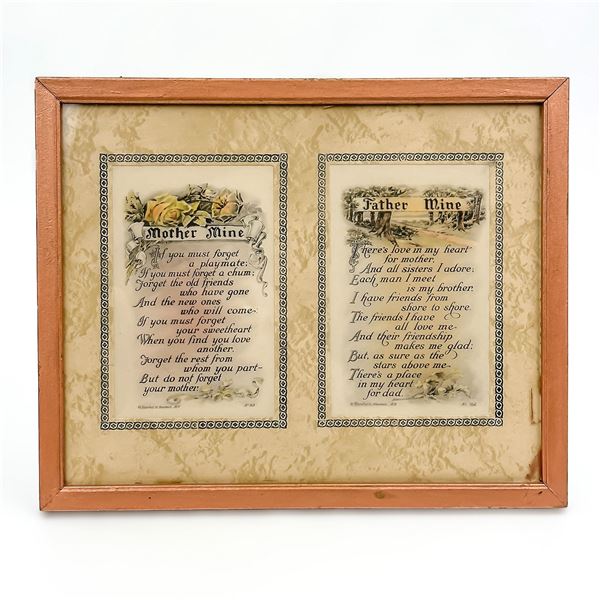 Mother Mine
If you must forget
a playmate;
If you must forget a chum;
Forget the old friends
who have gone
And the new ones
who will come;
If you must forget
your sweetheart
When you find you love
another,
Forget the rest from
whom you part—
But do not forget
your mother.
Father Mine
There's love in my heart
for mother,
And all sisters I adore;
Each man I meet
is my brother.
I have friends from
shore to shore.
The friends I have
all love me—
And their friendship
makes me glad;
But, as sure as the
stars above me—
There's a place
in my heart
for dad.